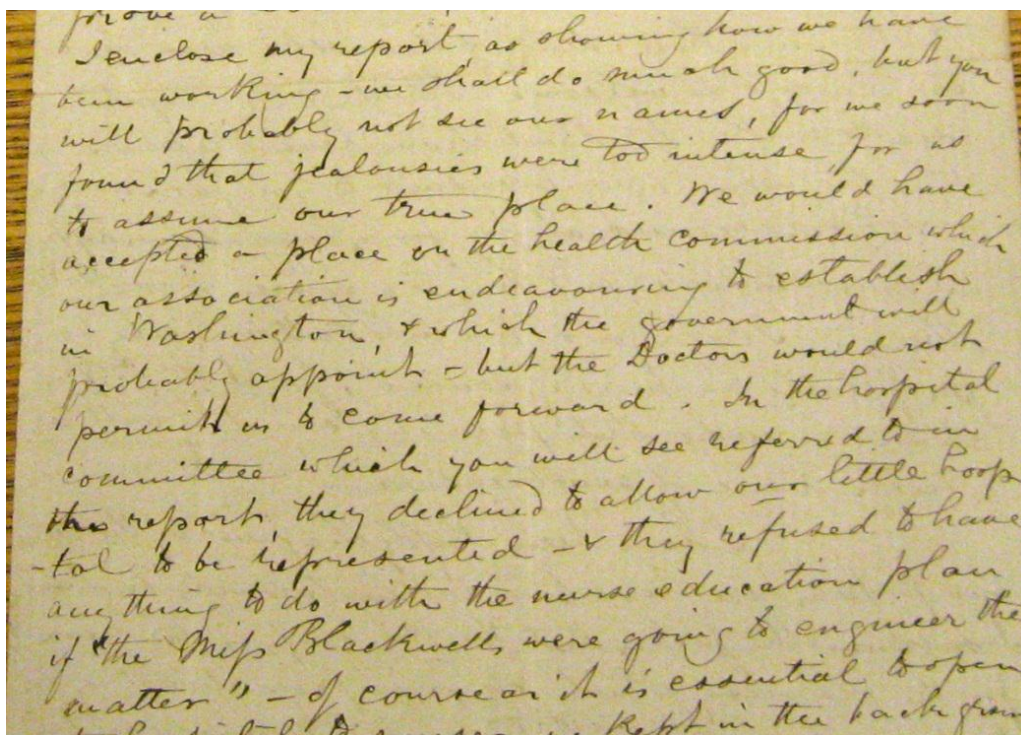 prove a
I enclose my report as showing how we have
been working - we shall do much good, but you
will probably not see our names, for we soon
found that jealousies were too intense for us
to assume our true place. We would have
accepted a place on the health commission which
our association is endeavouring to establish
in Washington, & which the government will
probably appoint - but the Doctors would not
permit us to come forward. In the hospital
committee which you will see referred to in
the report, they declined to allow our little hospi
-tal to be represented - & they refused to have
anything to do with the nurse education plan
if "the Miss Blackwells were going to engineer the
matter" - of course as it is essential to open
kept in the back groun